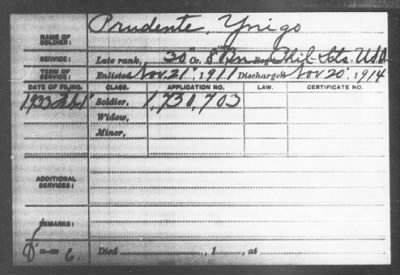 NAME OF SOLDIER: Prudente, Ynigo
SERVICE: Late rank, 30" Co. 8" Bn Reg't Phil. Scts. USA
TERM OF SERVICE: Enlisted Nov. 21", 1911 Discharged Nov 20", 1914
DATE OF FILING. CLASS. APPLICATION NO. LAW. CERTIFICATE NO.
1933 Feb 1" Soldier, 1,730,703
Widow,
Minor,
ADDITIONAL SERVICES:
REMARKS:
6. Died , 1 , at